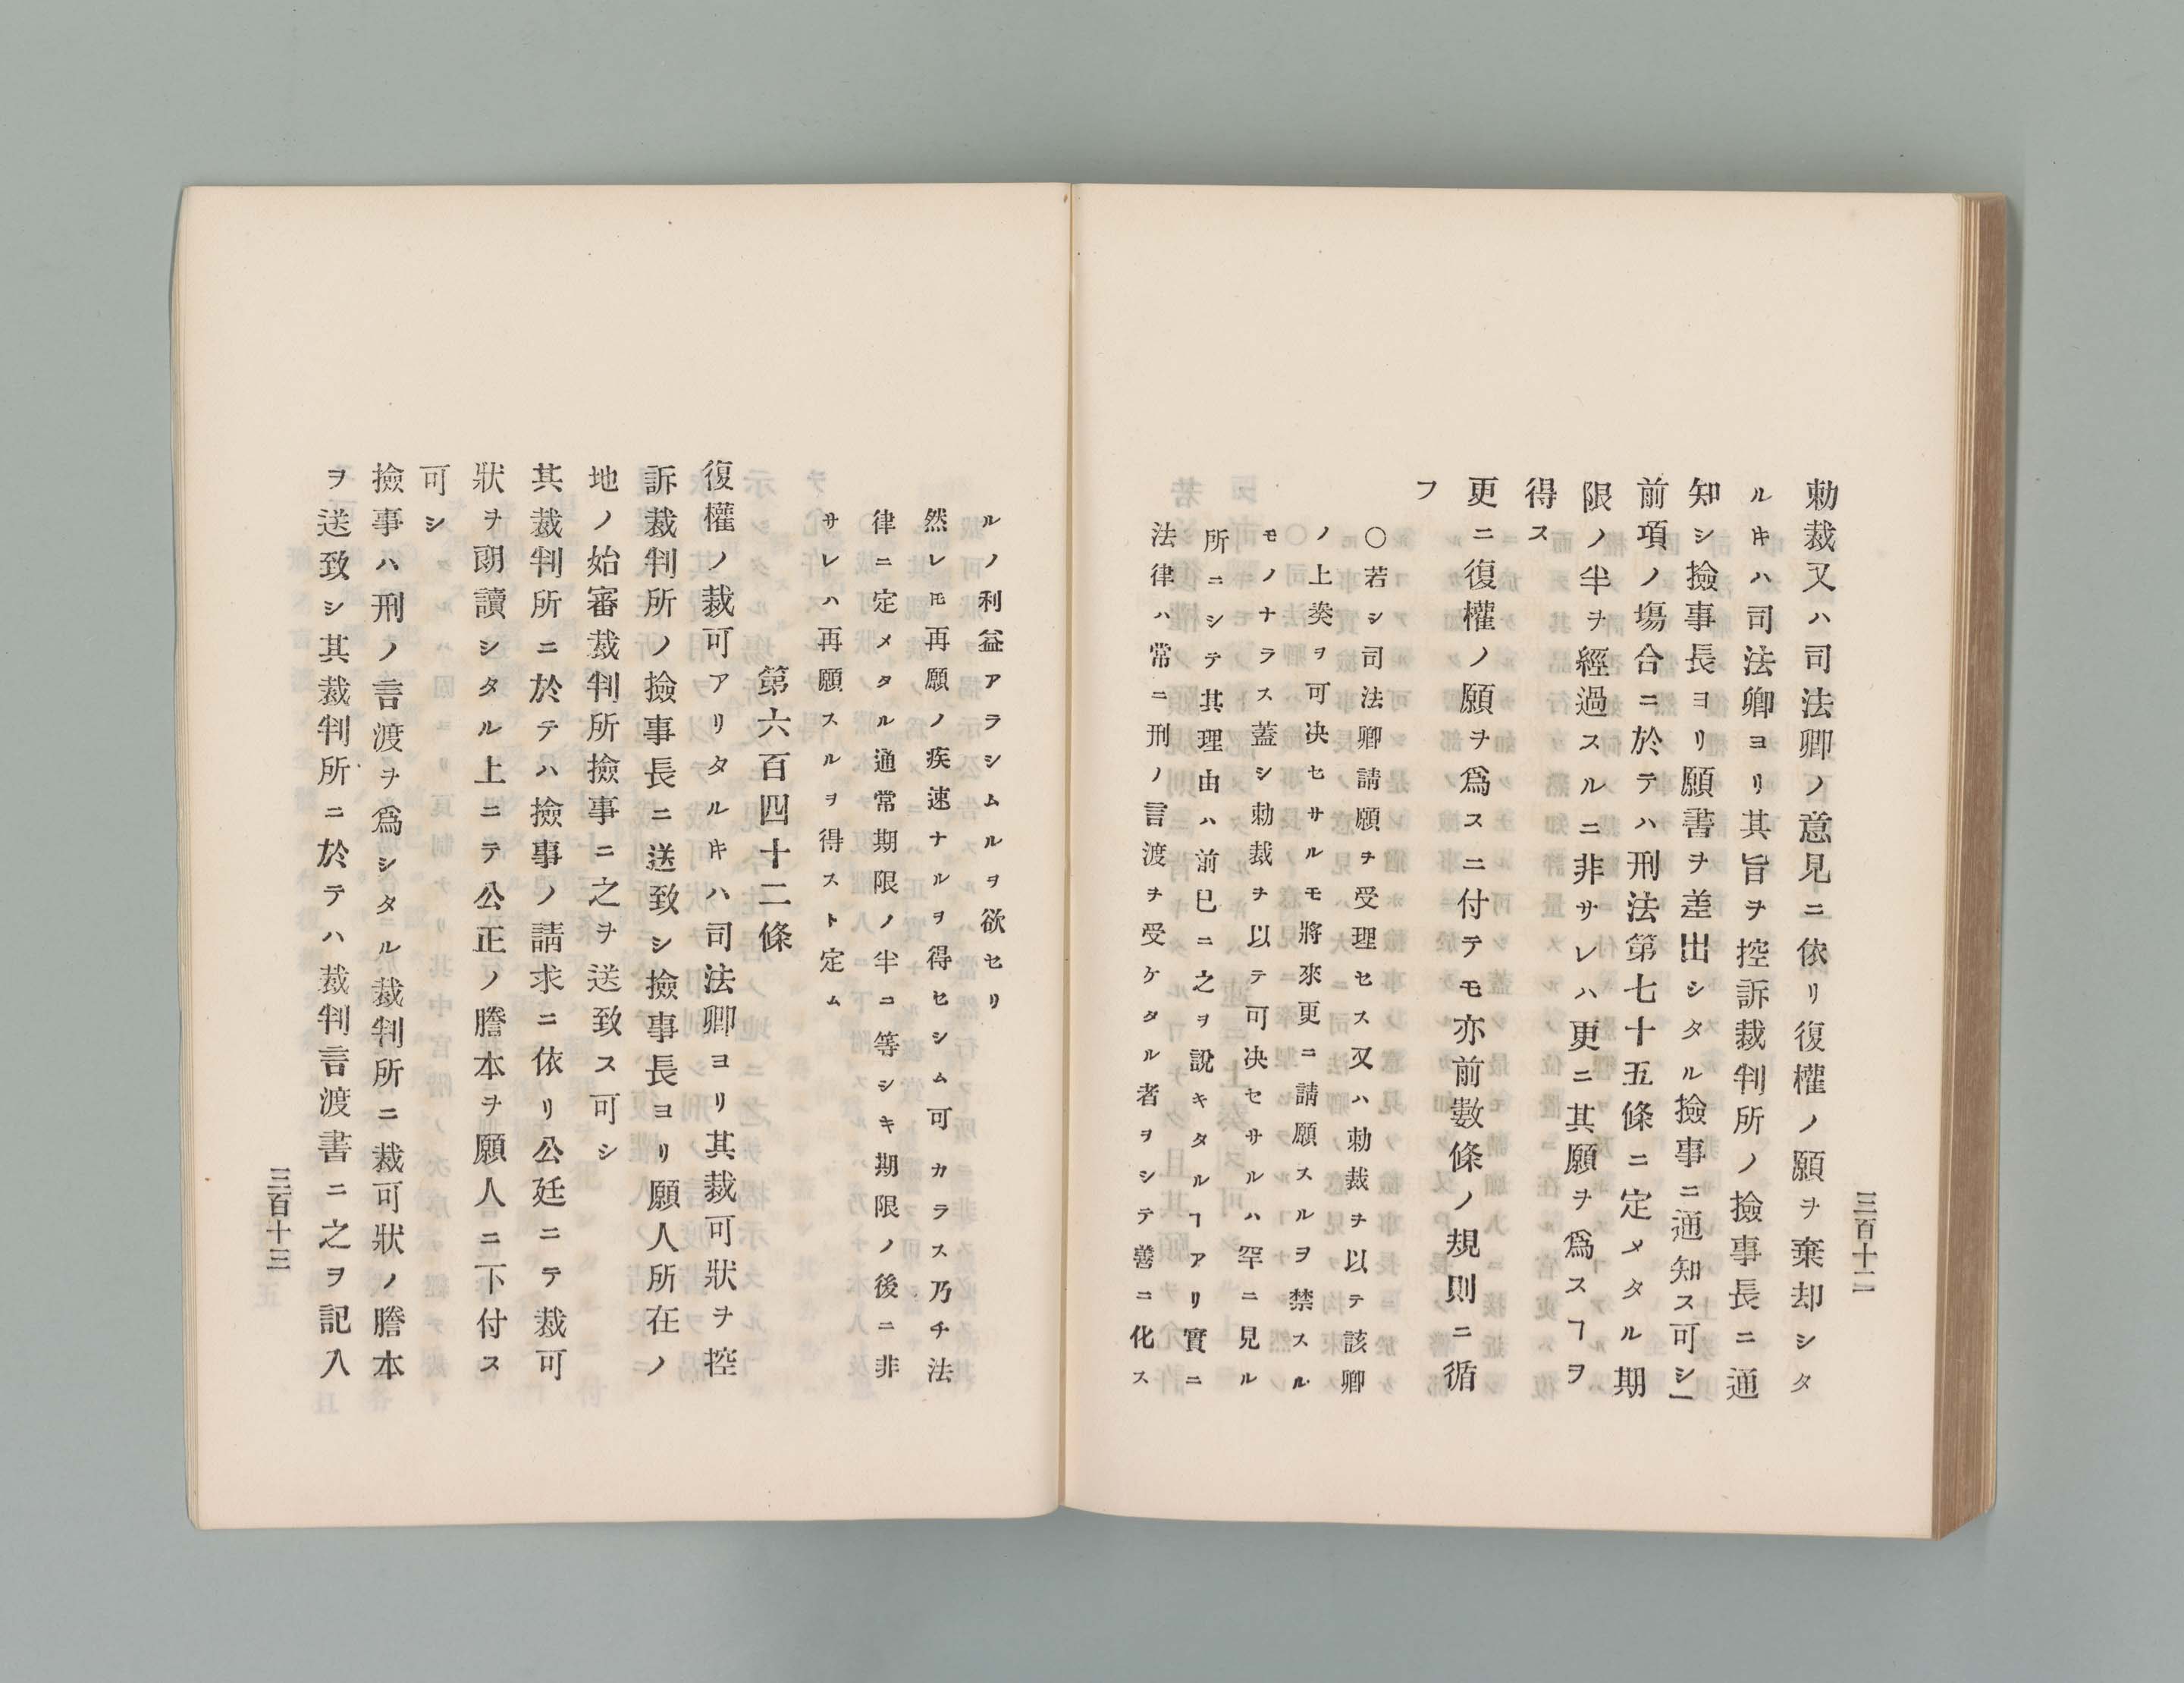 三百十二
勅裁又ハ司法卿ノ意見ニ依リ復權ノ願ヲ棄却シタ
ルキハ司法卿ヨリ其旨ヲ控訴裁判所ノ撿事長ニ通
知シ撿事長ヨリ願書ヲ差出シタル撿事ニ通知ス可シ
前項ノ塲合ニ於テハ刑法第七十五條ニ定メタル期
限ノ半ヲ經過スルニ非サレハ更ニ其願ヲ爲スヿヲ
得ス
更ニ復權ノ願ヲ爲スニ付テモ亦前數條ノ規則ニ循
フ
〇若シ司法卿請願ヲ受理セス又ハ勅裁ヲ以テ該卿
ノ上奏ヲ可决セサルモ將來更ニ請願スルヲ禁スル
モノナラス蓋シ勅裁ヲ以テ可决セサルハ罕ニ見ル
所ニシテ其理由ハ前已ニ之ヲ說キタルヿアリ實ニ
法律ハ常ニ刑ノ言渡ヲ受ケタル者ヲシテ善ニ化ス
ルノ利益アラシムルヲ欲セリ
然レ𪜈再願ノ疾速ナルヲ得セシム可カラス乃チ法
律ニ定メタル通常期限ノ半ニ等シキ期限ノ後ニ非
サレハ再願スルヲ得スト定ム
第六百四十二條
復權ノ裁可アリタルキハ司法卿ヨリ其裁可狀ヲ控
訴裁判所ノ撿事長ニ送致シ撿事長ヨリ願人所在ノ
地ノ始審裁判所撿事ニ之ヲ送致ス可シ
其裁判所ニ於テハ撿事ノ請求ニ依リ公廷ニテ裁可
狀ヲ朗讀シタル上ニテ公正ノ謄本ヲ願人ニ下付ス
可シ
撿事ハ刑ノ言渡ヲ爲シタル裁判所ニ裁可狀ノ謄本
ヲ送致シ其裁判所ニ於テハ裁判言渡書ニ之ヲ記入
三百十三